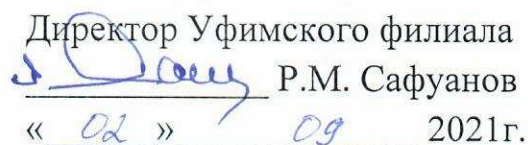 Директор Уфимского филиала
Р.М. Сафуанов
« 02 » 09 2021г.